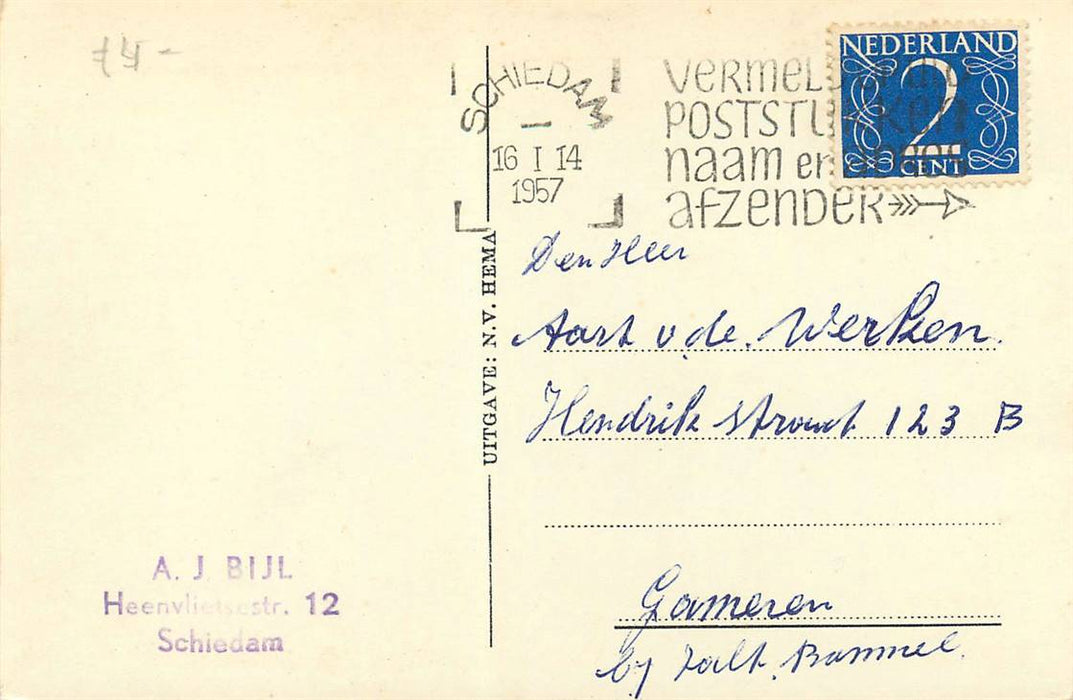 74-
SCHIEDAM
16 I 14
1957
VERMELD OP
POSTSTUKKEN
naam en adres
afzender
NEDERLAND
2
CENT
UITGAVE: N.V. HEMA
Den Heer
Aart v. de. Werken.
Hendrik straat 123 B
Gameren
by Zalt. Bommel.
A. J BIJL
Heenvlietsestr. 12
Schiedam